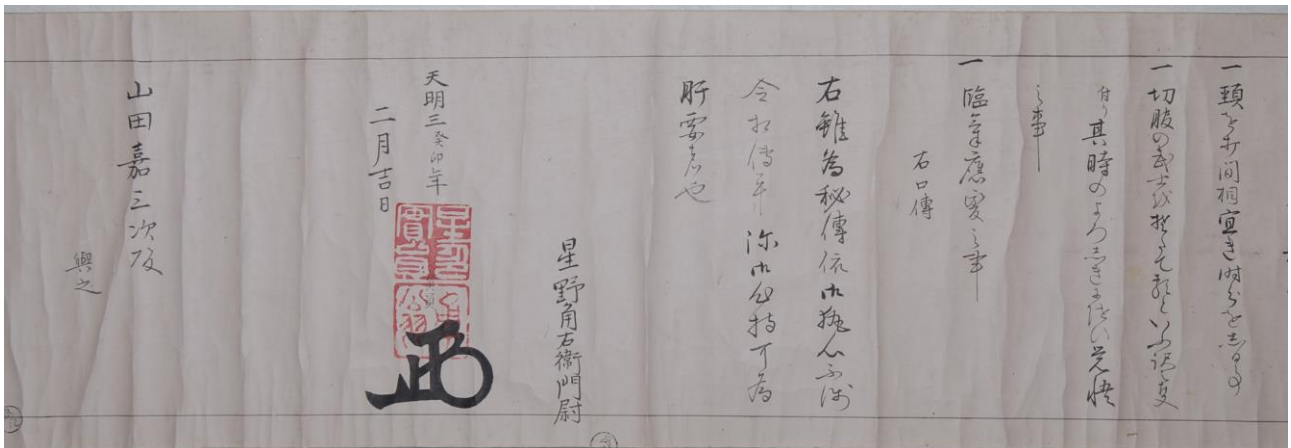 一頸を打間相宜き時分を志る事
一切腹の武士
其時のよろしきに随い覚悟
之事
一臨気應変之事
右口傳
右雖為秘傳依御執心不浅
令相傳畢弥御持可為
肝要者也
星野角右衛門尉
天明三癸卯年
二月吉日
山田嘉三次殿
與之